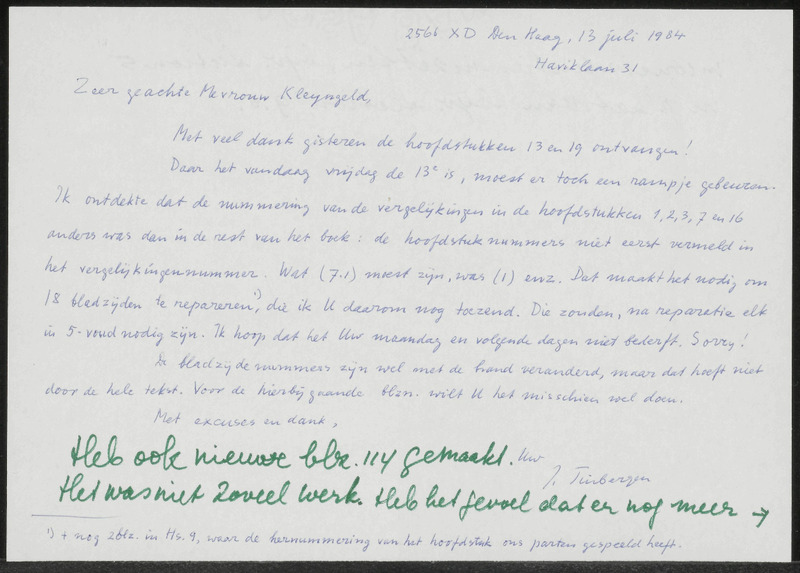 2566 XD Den Haag, 13 juli 1984
Haviklaan 31
Zeer geachte Mevrouw Kleyngeld,
Met veel dank gisteren de hoofdstukken 13 en 19 ontvangen!
Daar het vandaag vrijdag de 13e is, moest er toch een rampje gebeuren.
Ik ontdekte dat de nummering van de vergelijkingen in de hoofdstukken 1, 2, 3, 7 en 16
anders was dan in de rest van het boek: de hoofdstuknummers niet eerst vermeld in
het vergelijkingennummer. Wat (7.1) moest zijn, was (1) enz. Dat maakt het nodig om
18 bladzijden te repareren¹), die ik U daarom nog toezend. Die zouden, na reparatie elk
in 5-voud nodig zijn. Ik hoop dat het Uw maandag en volgende dagen niet bederft. Sorry!
De bladzijdenummers zijn wel met de hand veranderd, maar dat hoeft niet
door de hele tekst. Voor de hierbijgaande blzn. wilt U het misschien wel doen.
Met excuses en dank,
Uw
J. Tinbergen
Heb ook nieuwe blz. 114 gemaakt.
Het was niet zoveel werk. Heb het gevoel dat er nog meer →
¹) + nog 2 blz. in Hs. 9, waar de hernummering van het hoofdstuk ons parten gespeeld heeft.